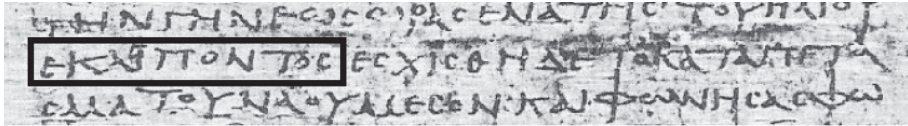 ΤΗΝΓΗΝΕΩϹΩΡΑϹΕΝΑΤΗϹΤΟΥΗΛΙΟΥ
ΕΚΛΕΙΠΟΝΤΟϹΕϹΧΙϹΘΗΔΕΤΟΚΑΤΑΠΕΤΑ
ϹΜΑΤΟΥΝΑΟΥΜΕϹΟΝ·ΚΑΙΦΩΝΗϹΑϹΦΩ